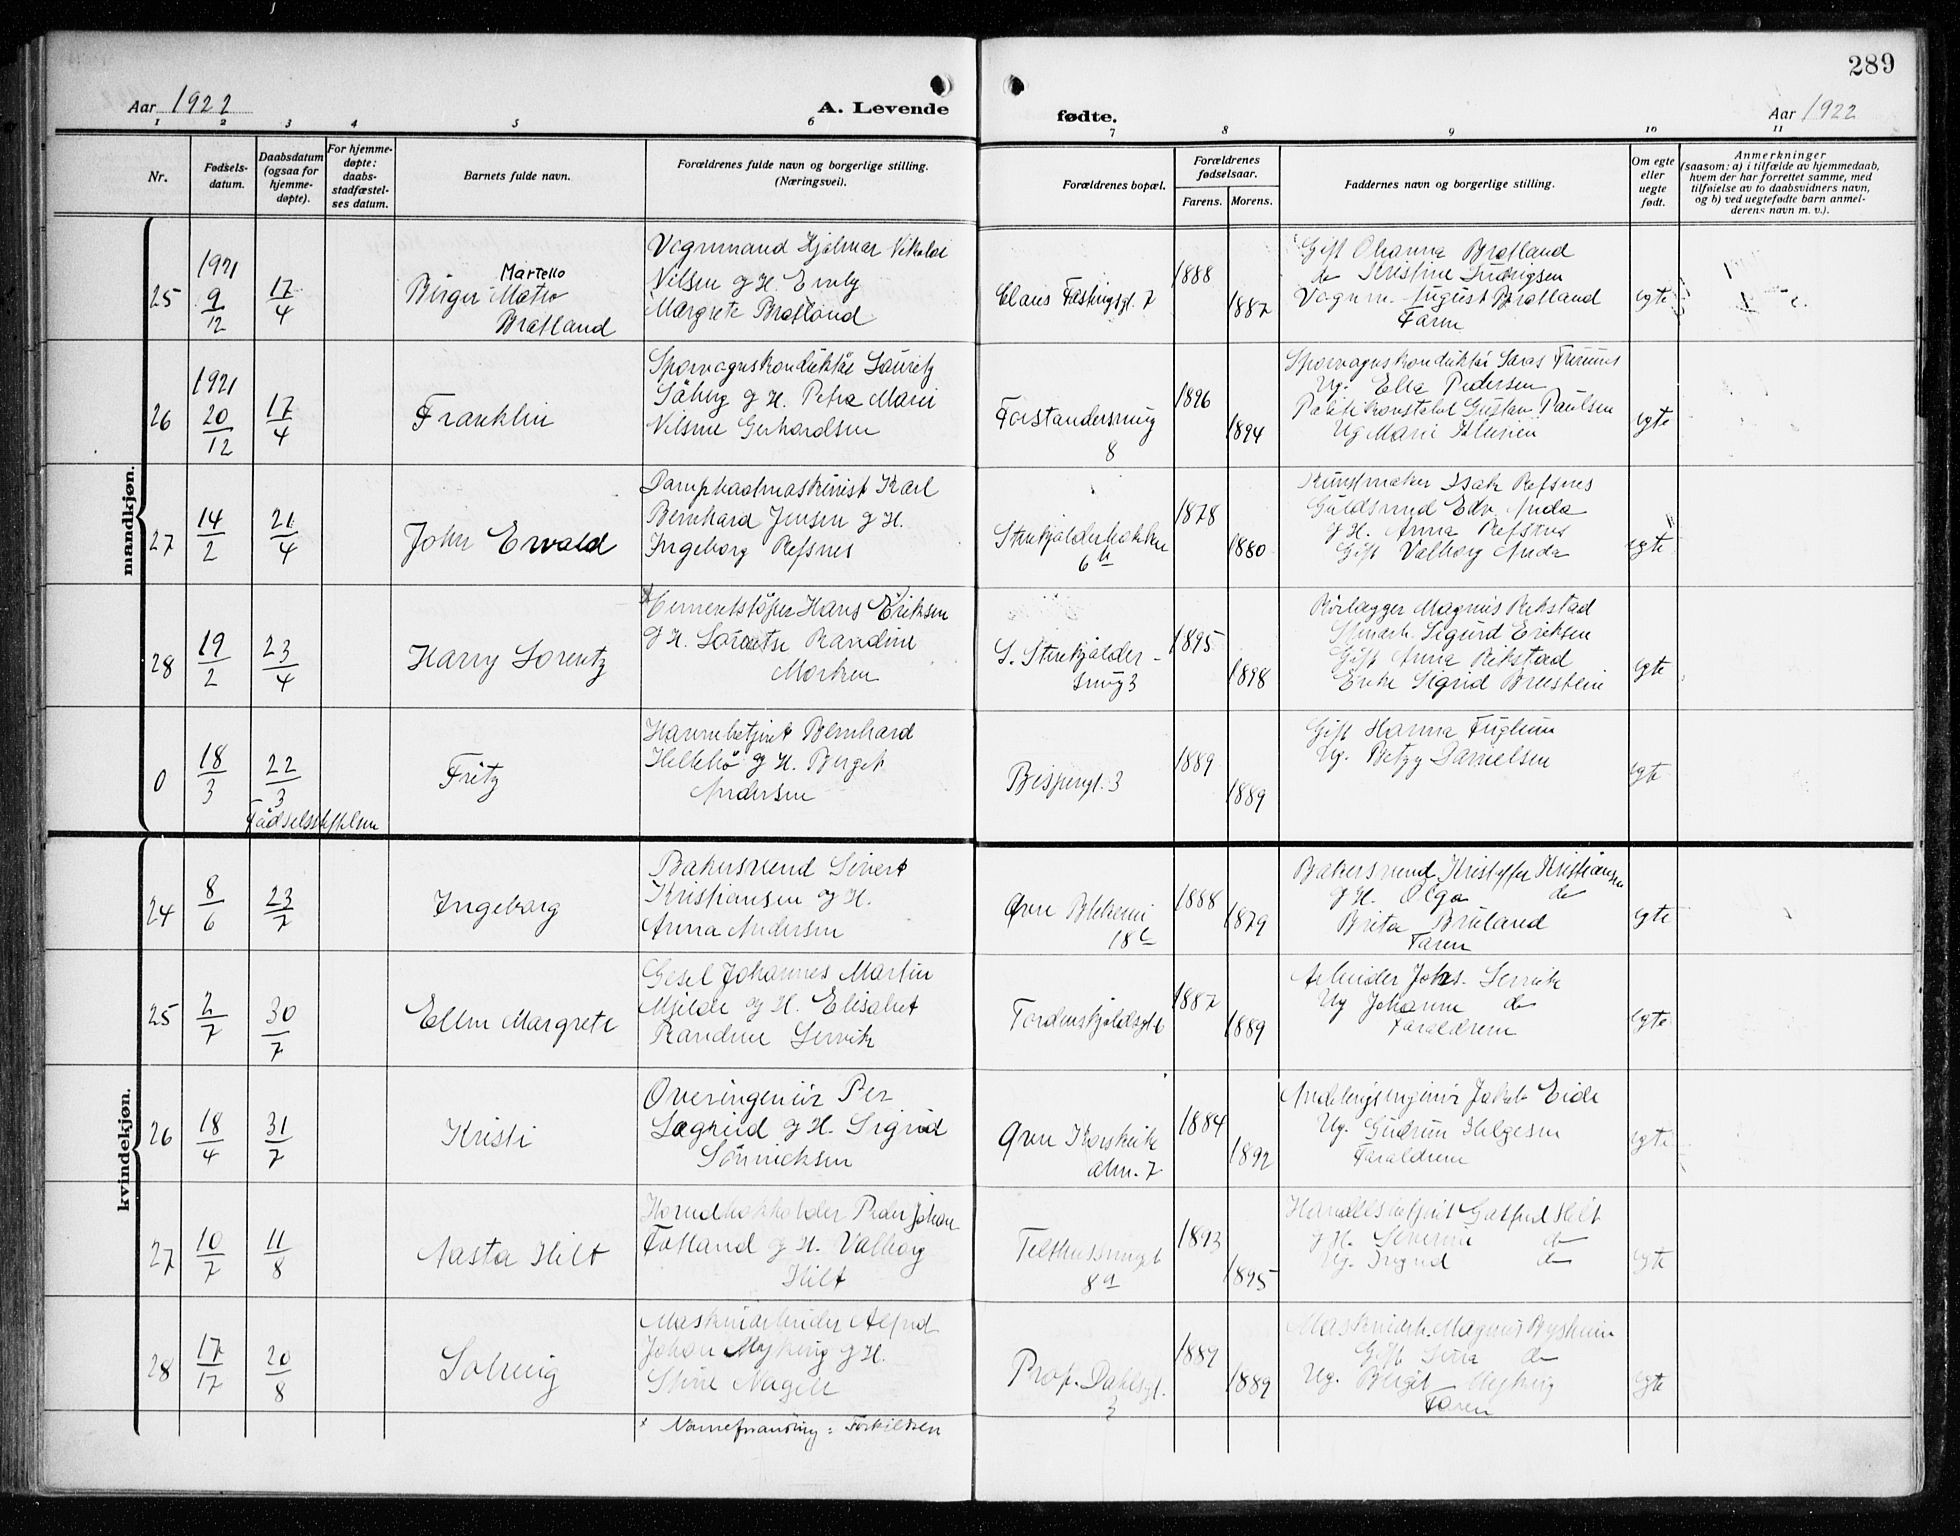 289
Aar 1922
A. Levende
fødte.
Aar 1922
1 2 3 4 5 6 7 8 9 10 11
Nr.
Fødsels-
datum.
Daabsdatum
(ogsaa for
hjemme-
døpte).
For hjemme-
døpte:
daabs-
stadfæstel-
ses datum.
Barnets fulde navn.
Forældrenes fulde navn og borgerlige stilling.
(Næringsvei).
Forældrenes bopæl.
Forældrenes
fødselsaar.
Farens. Morens.
Faddernes navn og borgerlige stilling.
Om egte
eller
uegte
født.
Anmerkninger
(saasom: a) i tilfælde av hjemmedaab,
hvem der har forrettet samme, med
tilføielse av to daabsvidners navn,
og b) ved uegtefødte barn anmel-
derens navn m. v.).
mandkjøn.
25
1921
9/12
17/4
Martello
Birger
Bratland
Vognmand Hjalmar Nikolai
Nilsen g H. Emly
Margrete Bratland
Claus Fastingsgt. 7
1888
1887
Gift Ohanna Bratland
do Kristine
Vognm. August Bratland
Faren
egte
26
1921
20/12
17/4
Franklin
Sporvognskonduktør Lauritz
Søberg g H. Petra Marie
Nilsine Gerhardsen
Forstandersmug
8
1896
1894
Sporvognskonduktør
Ug. Ella Pedersen
Politikonstabel Gustav Paulsen
Ug Marie
egte
27
14/2
21/4
John Ewald
Dampbaadmaskinist Karl
Bernhard Jensen g H.
Ingeborg Refsnes
Stenkjælderbakken
6 b
1878
1880
Kunstmaler Isak Refsnes
Guldsmed Edv. Anda
g H. Anna Refsnes
Gift Valborg Anda
egte
28
19/2
23/4
Harry Lorentz
x Cementstøper Hans Eriksen
g H. Randine
Morken
S. Stenkjælder-
smug 3
1895
1898
Rørlægger Magnus Rekstad
Stenarb. Sigurd Eriksen
Gift Anna Rekstad
Enke Sigrid
egte
0
18/3
22/3
Fødselsstiftelsen
Fritz
Havnebetjent Bernhard
Hellebø g H. Berget
Andersen
Bispengt. 3
1889
1889
Gift Hanna
Ug. Betzy Danielsen
egte
kvindekjøn.
24
8/6
23/7
Ingeborg
Bakersvend Sivert
Kristiansen g H.
Anna Andersen
Øvre Blekevei
18 c
1888
1879
Bakersvend Kristoffer Kristiansen
g H. Olga do
Brita Bruland
Faren
egte
25
2/7
30/7
Ellen Margrete
Gesel Johannes Martin
Mjelde g H. Elisabet
Randine Lervik
Tordenskjoldsgt 6
1887
1889
Arbeider Johs. Lervik
Ug Johanne do
Foraldrene
egte
26
18/4
31/7
Kristi
Overingeniør Per
Lægreid g H. Sigrid
Sønnichsen
Øvre Korskirke
alm. 7
1884
1892
Avdelingsingeniør Jakob Eide
Ug. Gudrun Helgesen
Foraldrene
egte
27
10/7
11/8
Aasta Hilt
Peder Johan
Folland g H. Valborg
Hilt
Telthussmuget
8 a
1893
1895
Handelsbetjent Gotfred Hilt
g H. Severine do
Ug. Ingrid do
egte
28
17/17
20/8
Solveig
Maskinarbeider Alfred
Johan Myking g H.
Stine Nagel
Prof. Dahlsgt.
3
1887
1889
Maskinarb. Magnus Bysheim
Gift Lina do
Ug. Birgit Myking
Faren
egte
x Navneforandring: Torkildsen